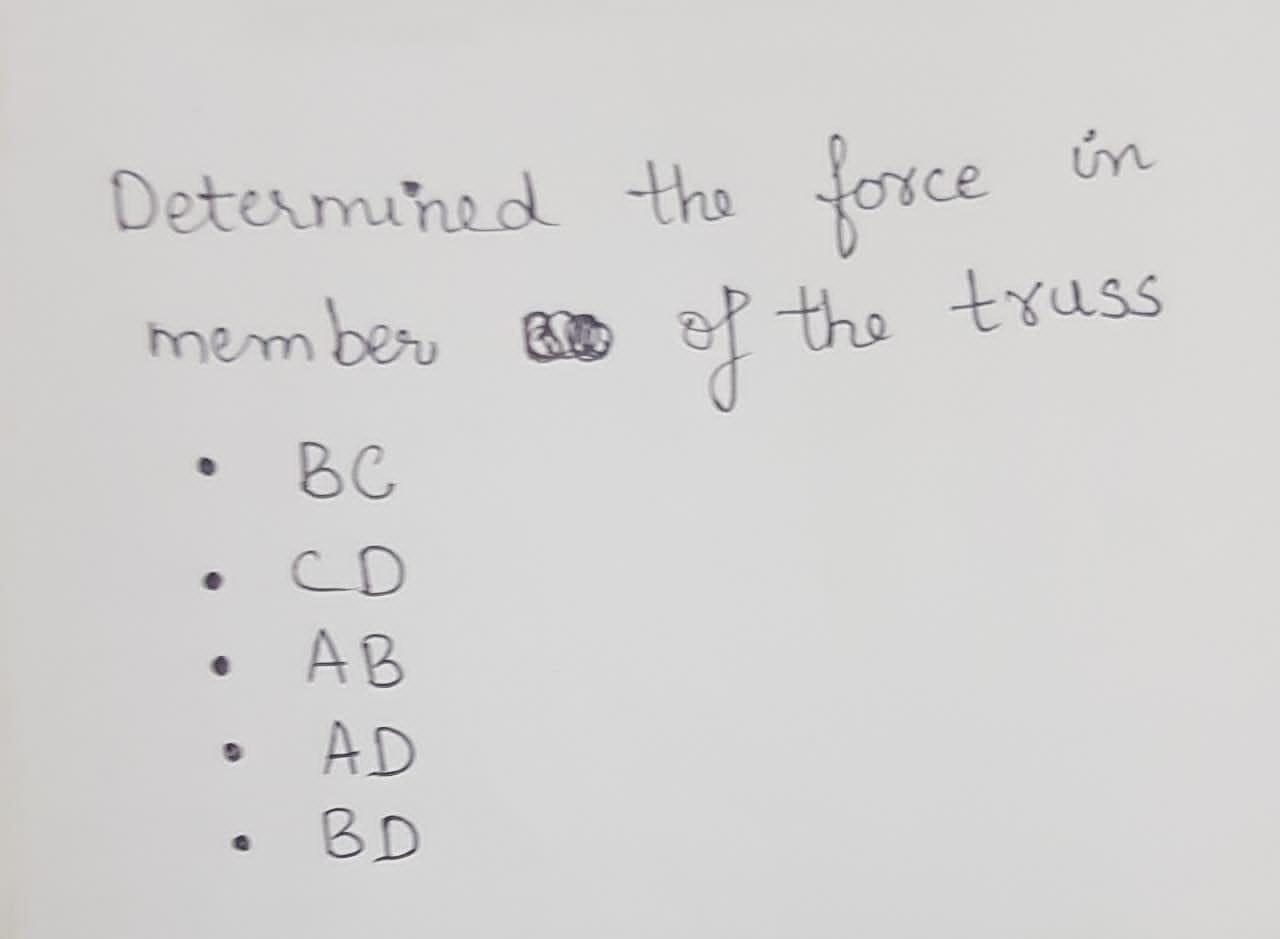 Determined the force in
member of the truss
• BC
• CD
• AB
• AD
• BD